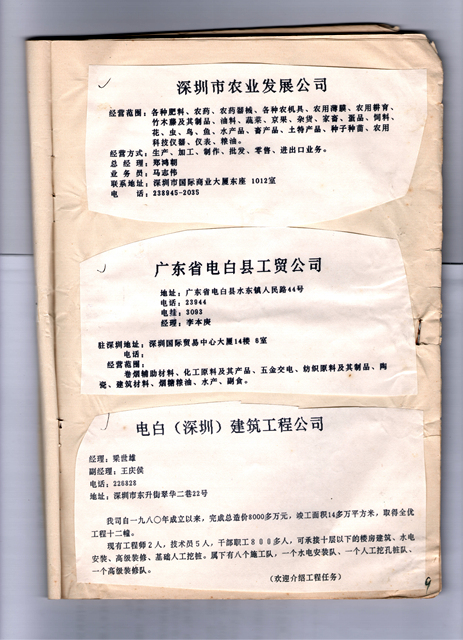 深圳市农业发展公司
经营范围：各种肥料、农药、农药器械、各种农机具、农用薄膜、农用耕育、
竹木藤及其制品、油料、蔬菜、京果、杂货、家畜、蛋品、饲料、
花、虫、鸟、鱼、水产品、畜产品、土特产品、种子种苗、农用
科技仪器、仪表、粮油。
经营方式：生产、加工、制作、批发、零售、进出口业务。
总 经 理：郑鸿朝
业 务 员：马志伟
联系地址：深圳市国际商业大厦东座 1012室
电 话：238945-2035
广东省电白县工贸公司
地址：广东省电白县水东镇人民路44号
电话：23944
电挂：3093
经理：李本庚
驻深圳地址：深圳国际贸易中心大厦14楼 6室
电话：
经营范围：
卷烟辅助材料、化工原料及其产品、五金交电、纺织原料及其制品、陶
瓷、建筑材料、烟糖粮油、水产、副食。
电白（深圳）建筑工程公司
经理：梁世雄
副经理：王庆侯
电话：226828
地址：深圳市东升街翠华二巷22号
我司自一九八〇年成立以来，完成总造价8000多万元，竣工面积14多万平方米，取得全优
工程十二幢。
现有工程师2人，技术员5人，干部职工800多人，可承接十层以下的楼房建筑、水电
安装、高级装修、基础人工挖桩。属下有八个施工队，一个水电安装队、一个人工挖孔桩队、
一个高级装修队。
（欢迎介绍工程任务）
9